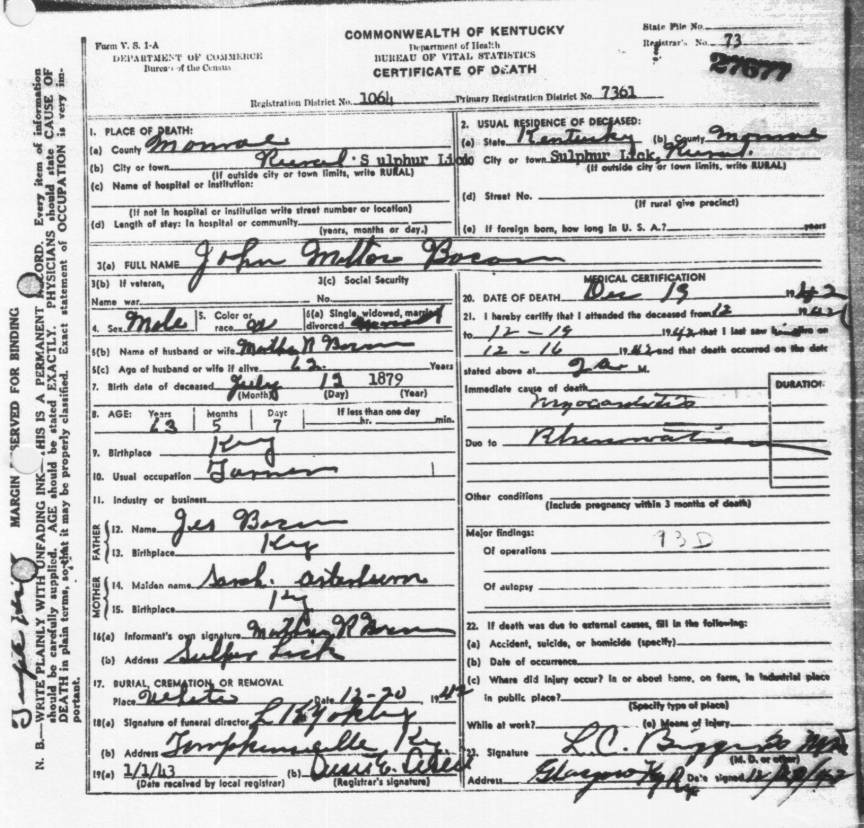 COMMONWEALTH OF KENTUCKY
Department of Health
BUREAU OF VITAL STATISTICS
CERTIFICATE OF DEATH
Form V. S. 1-A
DEPARTMENT OF COMMERCE
Bureau of the Census
State File No.
Registrar's No. 73
27677
Registration District No. 1064 Primary Registration District No. 7361
MARGIN RESERVED FOR BINDING
N. B.—WRITE PLAINLY WITH UNFADING INK—THIS IS A PERMANENT RECORD. Every item of information
should be carefully supplied. AGE should be stated EXACTLY. PHYSICIANS should state CAUSE OF
DEATH in plain terms, so that it may be properly classified. Exact statement of OCCUPATION is very im-
portant.
1. PLACE OF DEATH:
(a) County Monroe
(b) City or town Rural Sulphur Lick
(If outside city or town limits, write RURAL)
(c) Name of hospital or institution:
(If not in hospital or institution write street number or location)
(d) Length of stay: In hospital or community
(years, months or day.)
2. USUAL RESIDENCE OF DECEASED:
(a) State Kentucky (b) County Monroe
City or town Sulphur Lick, Rural.
(If outside city or town limits, write RURAL)
(d) Street No.
(If rural give precinct)
(e) If foreign born, how long in U. S. A.? years
3(a) FULL NAME John
3(b) If veteran, 3(c) Social Security
Name war No.
4. Sex Male 5. Color or race W 6(a) Single, widowed, married, divorced
6(b) Name of husband or wife Martha
6(c) Age of husband or wife if alive 62 Years
7. Birth date of deceased July 12 1879
(Month) (Day) (Year)
8. AGE: Years Months Days If less than one day
63 5 7 hr. min.
9. Birthplace Ky
10. Usual occupation Farmer
11. Industry or business
FATHER
12. Name
13. Birthplace Ky
MOTHER
14. Maiden name Sarah. Arterburn
15. Birthplace Ky
16(a) Informant's own signature
(b) Address Sulpur Lick
17. BURIAL, CREMATION, OR REMOVAL
Place White Date 12-20 1942
18(a) Signature of funeral director Yokley
(b) Address Tompkinsville Ky
19(a) 1/1/43 (b)
(Date received by local registrar) (Registrar's signature)
MEDICAL CERTIFICATION
20. DATE OF DEATH Dec 19 1942
21. I hereby certify that I attended the deceased from 12 1942
to 12-19 1942 that I last saw him alive on
12-16 1942 and that death occurred on the date
stated above at 2 M.
Immediate cause of death DURATION
Myocarditis
Due to Rheumatism
Other conditions
(Include pregnancy within 3 months of death)
Major findings: 93D
Of operations
Of autopsy
22. If death was due to external causes, fill in the following:
(a) Accident, suicide, or homicide (specify)
(b) Date of occurrence
(c) Where did injury occur? In or about home, on farm, in industrial place
in public place?
(Specify type of place)
While at work? (e) Means of injury
23. Signature L.C.
(M. D. or other)
Address Glasgow Ky Date signed